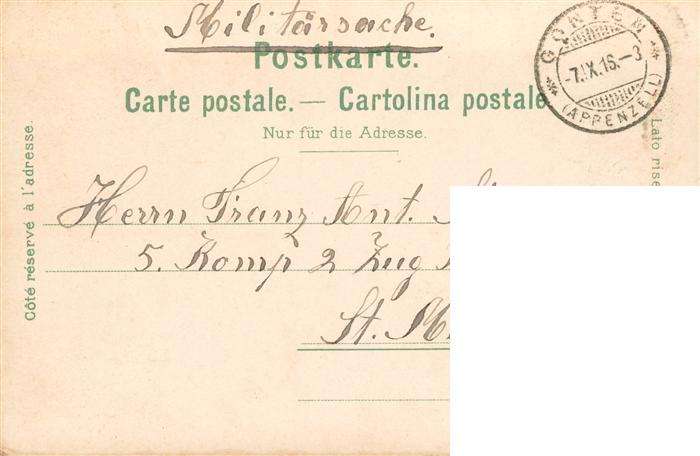 Militärsache.
Postkarte.
Carte postale. — Cartolina postale
Nur für die Adresse.
GONTEN
-7.IX.16.-3
(APPENZELL)
Côté réservé à l'adresse.
Lato rise
Herrn Franz Ant.
5. Komp 2 Zug
St.